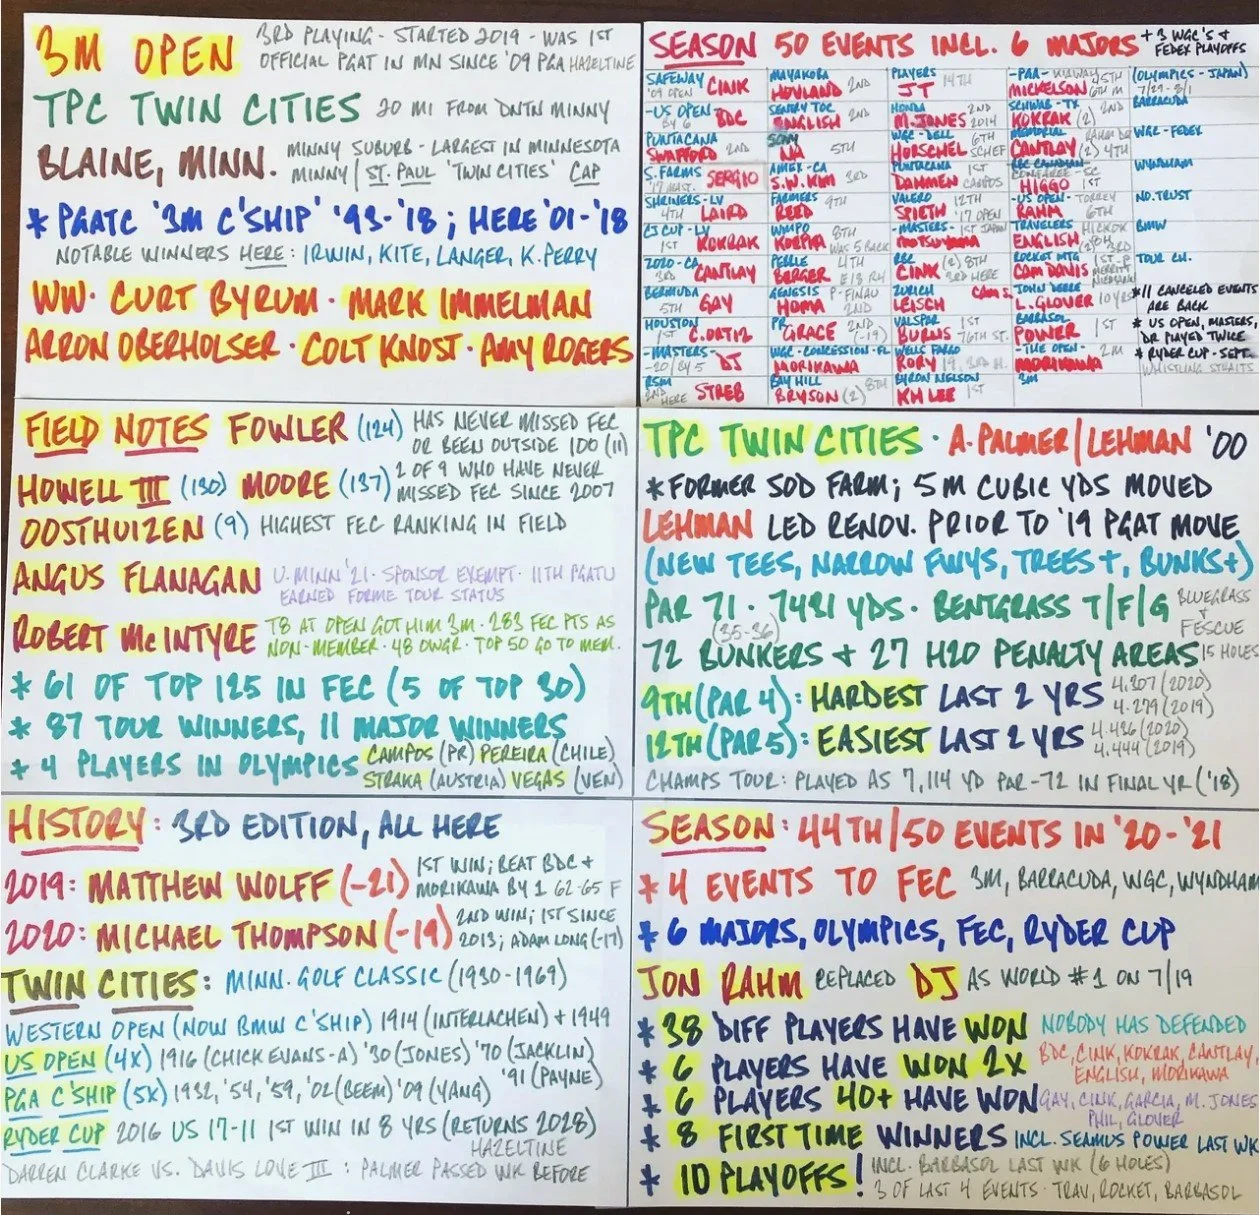 3M OPEN 3RD PLAYING - STARTED 2019 - WAS 1ST
OFFICIAL PGAT IN MN SINCE '09 PGA HAZELTINE
TPC TWIN CITIES 20 MI FROM DNTN MINNY
BLAINE, MINN. MINNY SUBURB - LARGEST IN MINNESOTA
MINNY | ST. PAUL 'TWIN CITIES' CAP
* PGATC '3M C'SHIP' '93-'18; HERE '01-'18
NOTABLE WINNERS HERE: IRWIN, KITE, LANGER, K. PERRY
WW· CURT BYRUM · MARK IMMELMAN
ARRON OBERHOLSER · COLT KNOST · AMY ROGERS
SEASON 50 EVENTS INCL. 6 MAJORS + 3 WGC'S + FEDEX PLAYOFFS
SAFEWAY '09 OPEN CINK
-US OPEN BY 6 BDC
PUNTACANA SWAFFORD 2ND
S. FARMS SERGIO
SHRINERS-LV 4TH LAIRD
CJ CUP-LV 1ST KOKRAK
ZOZO-CA 3RD CANTLAY
BERMUDA 5TH GAY
HOUSTON 1ST C.ORTIZ
-MASTERS- -20/BY 5 DJ
RSM 2ND HERE STREB
MAYAKOBA HOVLAND 2ND
SENTRY TOC ENGLISH 2ND
SONY NA 5TH
AMEX-CA S.W. KIM 3RD
FARMERS REED 9TH
WMPO KOEPKA 8TH WAS 5 BACK
PEBLE BERGER 4TH E18 R4
GENESIS HOMA P-FINAU 2ND
PR GRACE 2ND (-19)
WGC-CONCESSION-FL MORIKAWA
BAY HILL BRYSON (2) 8TH
PLAYERS JT 14TH
HONDA M. JONES 2ND 2014
WGC-DELL HORSCHEL 6TH SCHEF
PUNTACANA DAHMEN 1ST CAMPOS
VALERO SPIETH 12TH '17 OPEN
-MASTERS- MATSUYAMA 1ST JAPAN
RBC CINK (2) 8TH 3RD HERE
ZURICH LEISCH CAM S.
VALSPAR BURNS 1ST 76TH ST.
WELLS FARGO RORY 19
BYRON NELSON KH LEE 1ST
-PGA- KIAWAH MICKELSON 45TH 6TH M
SCHWAB-TX KOKRAK (2) 2ND
MEMORIAL CANTLAY (2) 4TH RAHM
CONGAREE-SC HIGGO 1ST
-US OPEN- TORREY RAHM 6TH
TRAVELERS ENGLISH (2) 3RD
ROCKET MTG CAM DAVIS 1ST
JOHN DEERE L. GLOVER 10 YRS
BARBASOL POWER 1ST
-THE OPEN- MORIKAWA 2M
3M
(OLYMPICS - JAPAN) 7/29-8/1
BARRACUDA
WGC-FEDEX
WYNDHAM
NO. TRUST
BMW
TOUR CH.
*11 CANCELED EVENTS
ARE BACK
* US OPEN, MASTERS,
DR PLAYED TWICE
* RYDER CUP - SEPT.
WHISTLING STRAITS
FIELD NOTES FOWLER (124) HAS NEVER MISSED FEC
OR BEEN OUTSIDE 100 (11)
HOWELL III (130) MOORE (137) 2 OF 9 WHO HAVE NEVER
MISSED FEC SINCE 2007
OOSTHUIZEN (9) HIGHEST FEC RANKING IN FIELD
ANGUS FLANAGAN U. MINN '21 · SPONSOR EXEMPT · 11TH PGATU
EARNED FORME TOUR STATUS
ROBERT McINTYRE T8 AT OPEN GOT HIM 3M · 283 FEC PTS AS
NON-MEMBER · 48 OWGR · TOP 50 GO TO MEM.
* 61 OF TOP 125 IN FEC (5 OF TOP 30)
* 87 TOUR WINNERS, 11 MAJOR WINNERS
* 4 PLAYERS IN OLYMPICS CAMPOS (PR) PEREIRA (CHILE)
STRAKA (AUSTRIA) VEGAS (VEN)
TPC TWIN CITIES · A. PALMER/LEHMAN '00
*FORMER SOD FARM; 5M CUBIC YDS MOVED
LEHMAN LED RENOV. PRIOR TO '19 PGAT MOVE
(NEW TEES, NARROW FWYS, TREES +, BUNKS+)
PAR 71 · 7431 YDS · BENTGRASS T/F/G BLUEGRASS + FESCUE
(35-36)
72 BUNKERS + 27 H2O PENALTY AREAS! 15 HOLES
9TH (PAR 4): HARDEST LAST 2 YRS 4.307 (2020)
4.279 (2019)
12TH (PAR 5): EASIEST LAST 2 YRS 4.426 (2020)
4.444 (2019)
CHAMPS TOUR: PLAYED AS 7,114 YD PAR-72 IN FINAL YR ('18)
HISTORY: 3RD EDITION, ALL HERE
2019: MATTHEW WOLFF (-21) 1ST WIN; BEAT BDC +
MORIKAWA BY 1 62-65 F
2020: MICHAEL THOMPSON (-19) 2ND WIN; 1ST SINCE
2013; ADAM LONG (-17)
TWIN CITIES: MINN. GOLF CLASSIC (1930-1969)
WESTERN OPEN (NOW BMW C'SHIP) 1914 (INTERLACHEN) + 1949
US OPEN (4X) 1916 (CHICK EVANS-A) '30 (JONES) '70 (JACKLIN)
'91 (PAYNE)
PGA C'SHIP (5X) 1932, '54, '59, '02 (BEEM) '09 (YANG)
RYDER CUP 2016 US 17-11 1ST WIN IN 8 YRS (RETURNS 2028)
HAZELTINE
DARREN CLARKE VS. DAVIS LOVE III : PALMER PASSED WK BEFORE
SEASON: 44TH/50 EVENTS IN '20-'21
* 4 EVENTS TO FEC 3M, BARRACUDA, WGC, WYNDHAM
* 6 MAJORS, OLYMPICS, FEC, RYDER CUP
JON RAHM REPLACED DJ AS WORLD #1 ON 7/19
* 38 DIFF PLAYERS HAVE WON NOBODY HAS DEFENDED
* 6 PLAYERS HAVE WON 2X BDC, CINK, KOKRAK, CANTLAY,
ENGLISH, MORIKAWA
* 6 PLAYERS 40+ HAVE WON GAY, CINK, GARCIA, M. JONES
PHIL, GLOVER
* 8 FIRST TIME WINNERS INCL. SEAMUS POWER LAST WK
* 10 PLAYOFFS! INCL. BARBASOL LAST WK (6 HOLES)
3 OF LAST 4 EVENTS - TRAV, ROCKET, BARBASOL